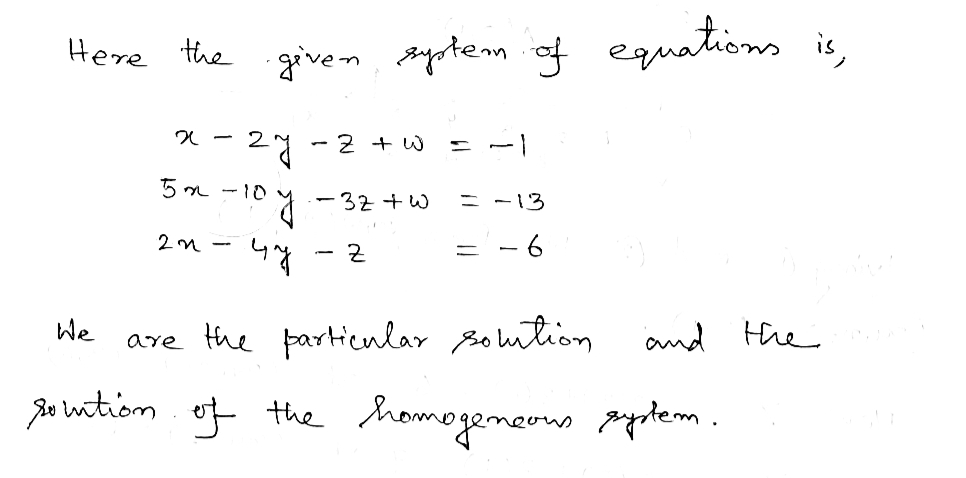 Here the given system of equations is,
x - 2y - z + w = -1
5x - 10y - 3z + w = -13
2x - 4y - z = -6
We are the particular solution and the
solution of the homogeneous system.